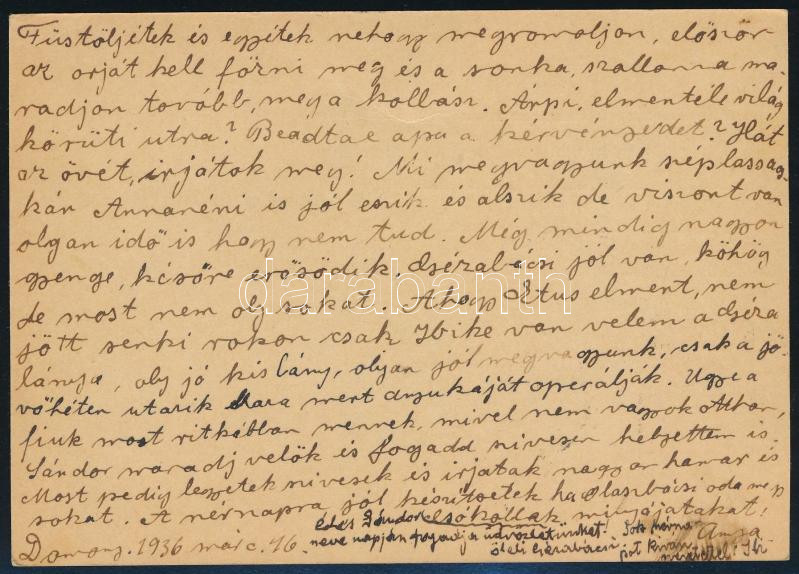 Füstöljétek és egyétek nehogy megromoljon, először
az orját kell főzni meg és a sonka, szallonna ma-
radjon tovább, meg a kolbász. Árpi, elmentél e világ
körüli utra? Beadtae apu a kérvényedet? Hát
az övét, irjátok meg! Mi megvagyunk széplassacs-
kán Annanéni is jól eszik és alszik de viszont van
olyan idő is hogy nem tud. Még mindig nagyon
gyenge, későre erősödik. Gézabácsi jól van, köhög
de most nem oly sokat. Ahogy Etus elment, nem
jött senki rokon csak Ibike van velem a Géza
lánya, oly jó kis lány, olyan jól megvagyunk, csak a jö-
vőhéten utazik haza mert anyukáját operálják. Ugye a
fiuk most ritkábban mennek, mivel nem vagyok otthon,
Sándor maradj velök és fogadd szivesen helyettem is.
Most pedig legyetek szivesek és irjatok nagyon hamar és
sokat. A névnapra jól készüljetek ha oda megy
csókollak mindnyájatokat!
Anya
1936 márc. 16.
Édes Sándor
neve napján fogadja üdvözletünket!
öleli Gézabácsi
darabanth